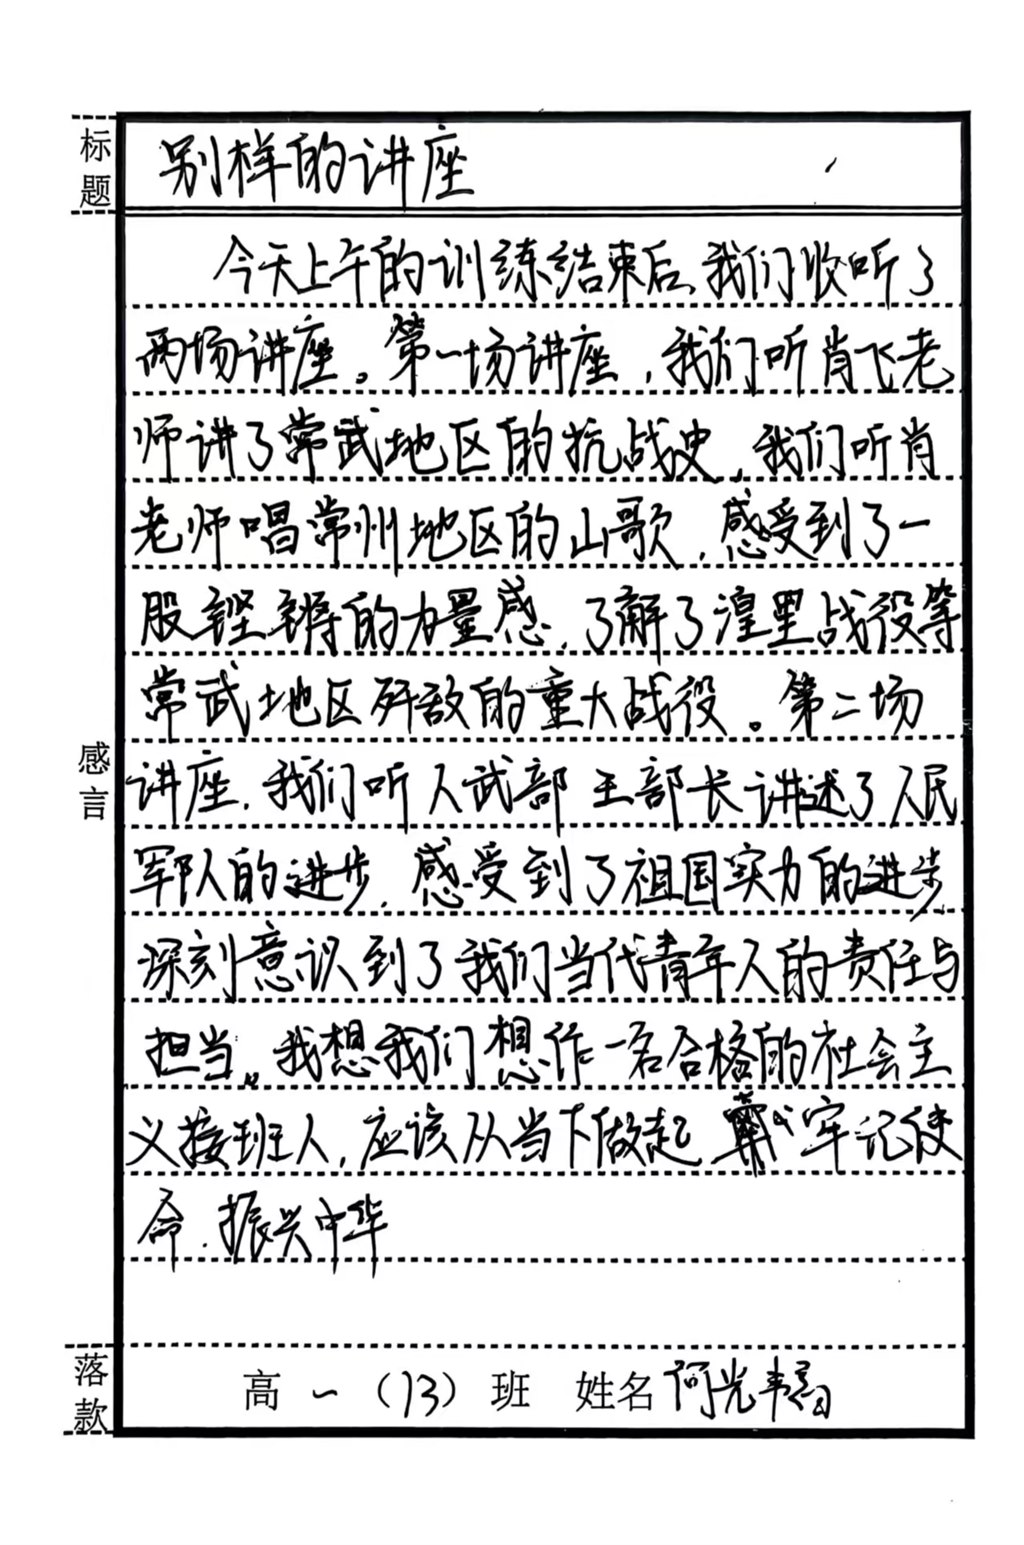 标题
别样的讲座
今天上午的训练结束后,我们收听了
两场讲座。第一场讲座,我们听肖飞老
师讲了常武地区的抗战史,我们听肖
老师唱常州地区的山歌,感受到了一
股铿锵的力量感,了解了湟里战役等
常武地区歼敌的重大战役。第二场
讲座,我们听人武部王部长讲述了人民
军队的进步,感受到了祖国实力的进步
深刻意识到了我们当代青年人的责任与
感言
担当。我想我们想作一名合格的社会主
义接班人,应该从当下做起 牢记使
命,振兴中华
落款
高一(13)班 姓名